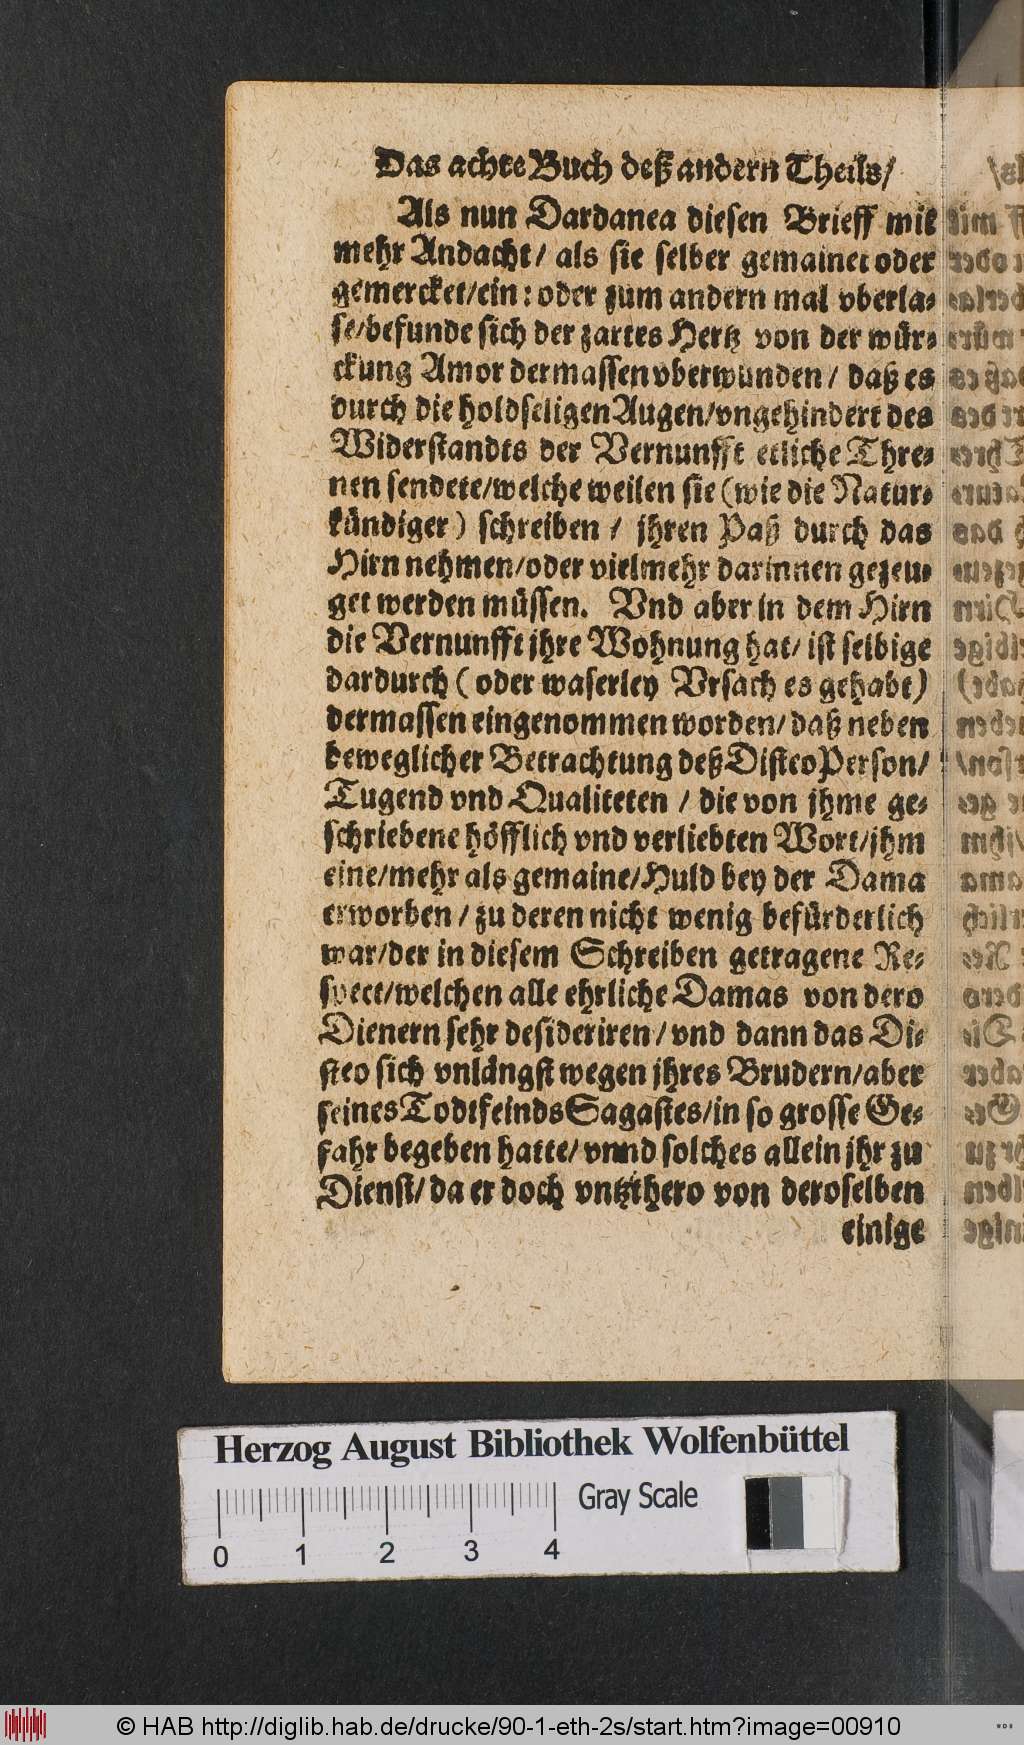 Das achte Buch deß andern Theils/
Als nun Dardanea diesen Brieff mit
mehr Andacht/ als sie selber gemainet oder
gemercket/ein: oder zum andern mal vberla-
se/befunde sich der zartes Hertz von der wür-
ckung Amor dermassen vberwunden/ daß es
durch die holdseligen Augen/vngehindert des
Widerstandts der Vernunfft etliche Thre-
nen sendete/welche weilen sie (wie die Natur-
kündiger) schreiben / jhren Paß durch das
Hirn nehmen/oder vielmehr darinnen gezeu-
get werden müssen. Vnd aber in dem Hirn
die Vernunfft jhre Wohnung hat/ ist selbige
dardurch ( oder waserley Vrsach es gehabt)
dermassen eingenommen worden/ daß neben
beweglicher Betrachtung deß Disteo Person/
Tugend vnd Qualiteten / die von jhme ge-
schriebene höfflich vnd verliebten Wort/jhm
eine/mehr als gemaine/Huld bey der Dama
erworben / zu deren nicht wenig befürderlich
war/der in diesem Schreiben getragene Re-
spect/welchen alle ehrliche Damas von dero
Dienern sehr desideriren/ vnd dann das Di-
steo sich vnlängst wegen jhres Brudern/aber
seines Todtfeinds Sagastes/in so grosse Ge-
fahr begeben hatte/ vnnd solches allein jhr zu
Dienst/ da er doch vntzthero von deroselben
einige
Herzog August Bibliothek Wolfenbüttel
Gray Scale
0 1 2 3 4
© HAB http://diglib.hab.de/drucke/90-1-eth-2s/start.htm?image=00910